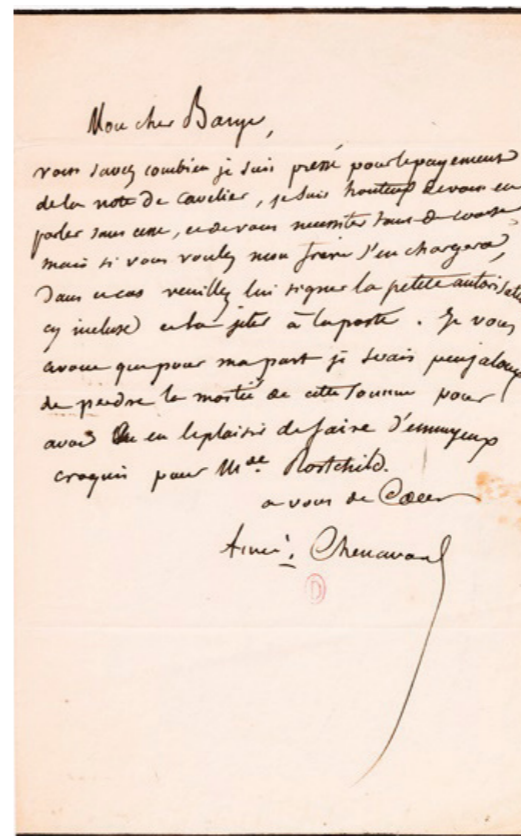 Mon cher Barye,
vous savez combien je suis pressé pour le payement
de la note de Cavelier, je suis honteux de vous en
parler sans cesse, et de vous nécessiter tant de courses
mais si vous voulez mon frère s'en chargera,
dans ce cas veuillez lui signer la petite autorisation
cy incluse et la jeter à la poste. Je vous
avoue que pour ma part je serais peu jaloux
de perdre la moitié de cette somme pour
avoir eu le plaisir de faire d'ennuyeux
croquis pour Mde Rostchild.
a vous de Coeur
Aimé Chenavard
D